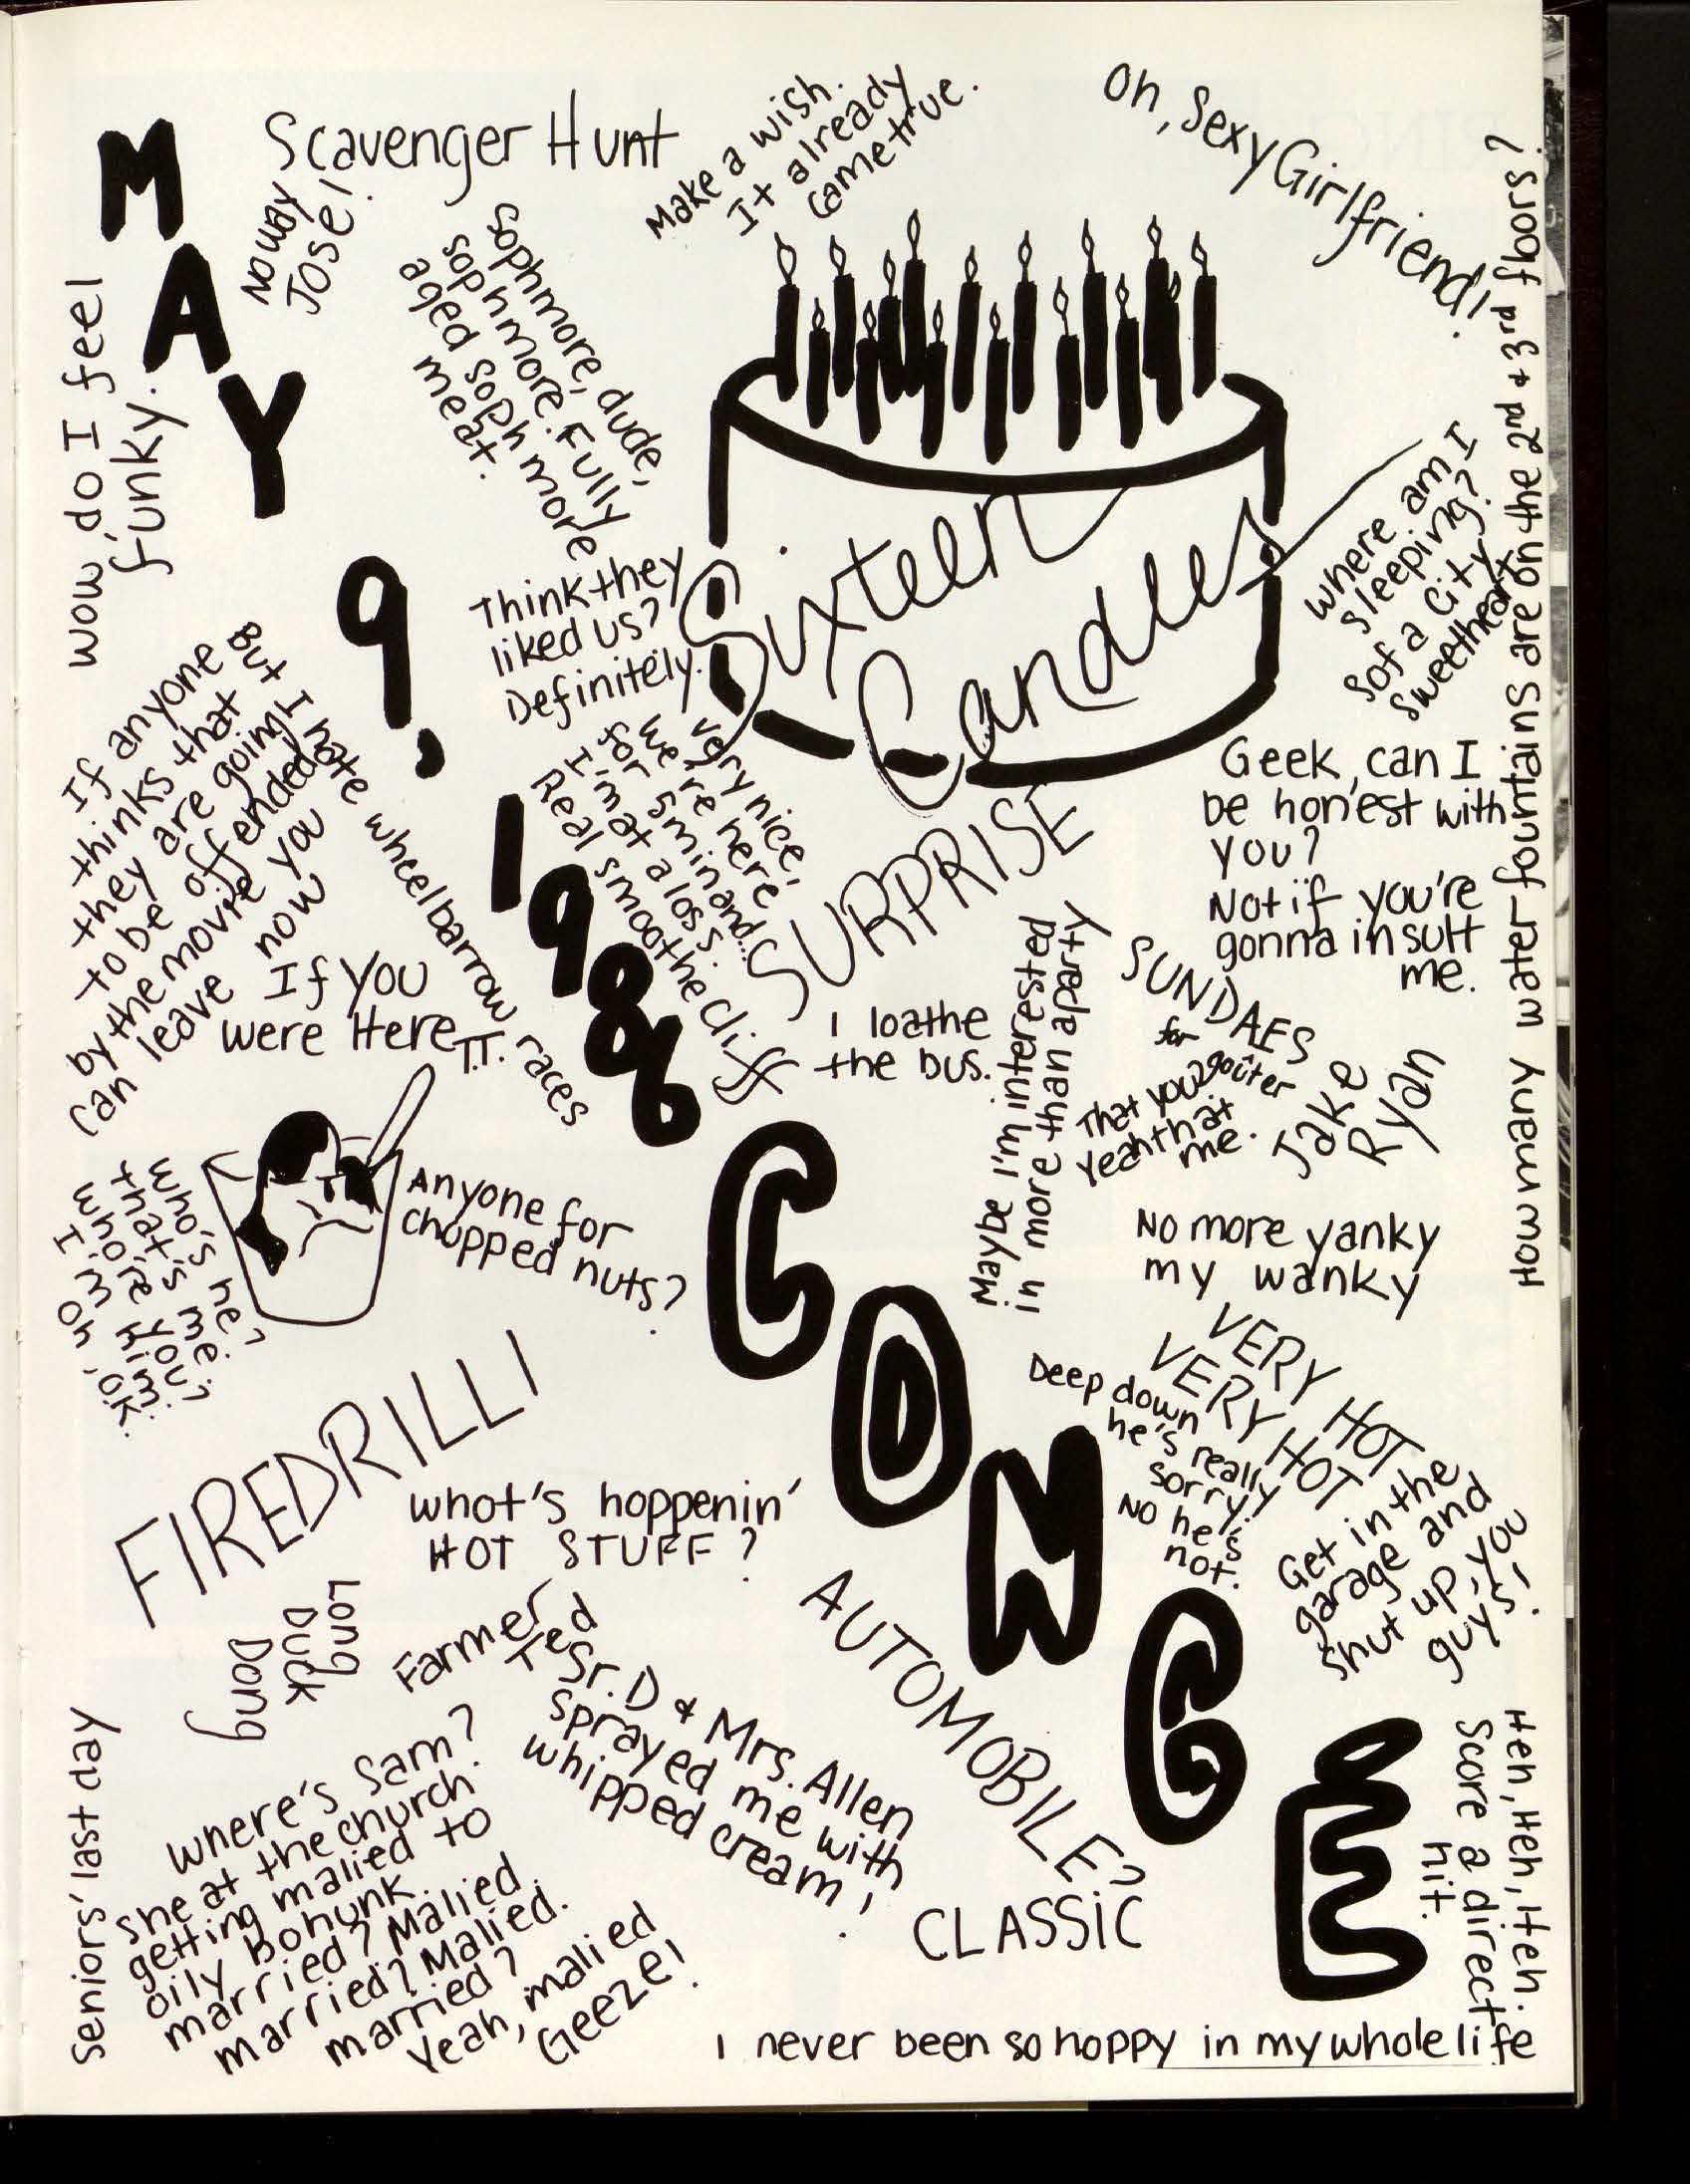 MAY
9,
1986
CONGÉ
Scavenger Hunt
No way
José!
Make a wish.
It already
came true.
Oh, Sexy Girlfriend!
How many water fountains are on the 2nd + 3rd floors?
wow, do I feel
funky.
sophmore, dude,
sophmore. Fully
aged sophmore
meat.
Sixteen
Candles
where am I
sleeping?
Sofa City
Sweetheart
Think they
liked us?
Definitely.
If anyone
thinks that
they are going
to be offended
by the movie you
can leave now
But I hate wheelbarrow races
very nice,
we're here
for 5 min and...
I'm at a loss.
Real smoothe Cliff
SURPRISE
Geek, can I
be honest with
you?
Not if you're
gonna insult
me.
If you
were Here
T.T.
I loathe
the bus.
Maybe I'm interested
in more than a party
SUNDAES
for
goûter
That you?
Yeah that
me.
Jake
Ryan
who's he?
that's me.
who're you?
I'm him.
oh, ok.
Anyone for
chopped nuts?
No more yanky
my wanky
FIREDRILL!
VERY HOT
VERY HOT
Deep down
he's really
sorry.
No he's
not.
whot's hoppenin'
HOT STUFF?
Get in the
garage and
shut up, you
guys!
Long
Duck
Dong
Farmer
Ted
AUTOMOBILE?
Sr. D & Mrs. Allen
sprayed me with
whipped cream!
Seniors' last day
where's Sam?
she at the church
getting malied to
oily bohunk.
married? Malied.
married? Malied.
married?
Yeah, malied
Geeze!
CLASSIC
Heh, Heh, Heh, Heh.
Score a direct
hit.
I never been so hoppy in my whole life